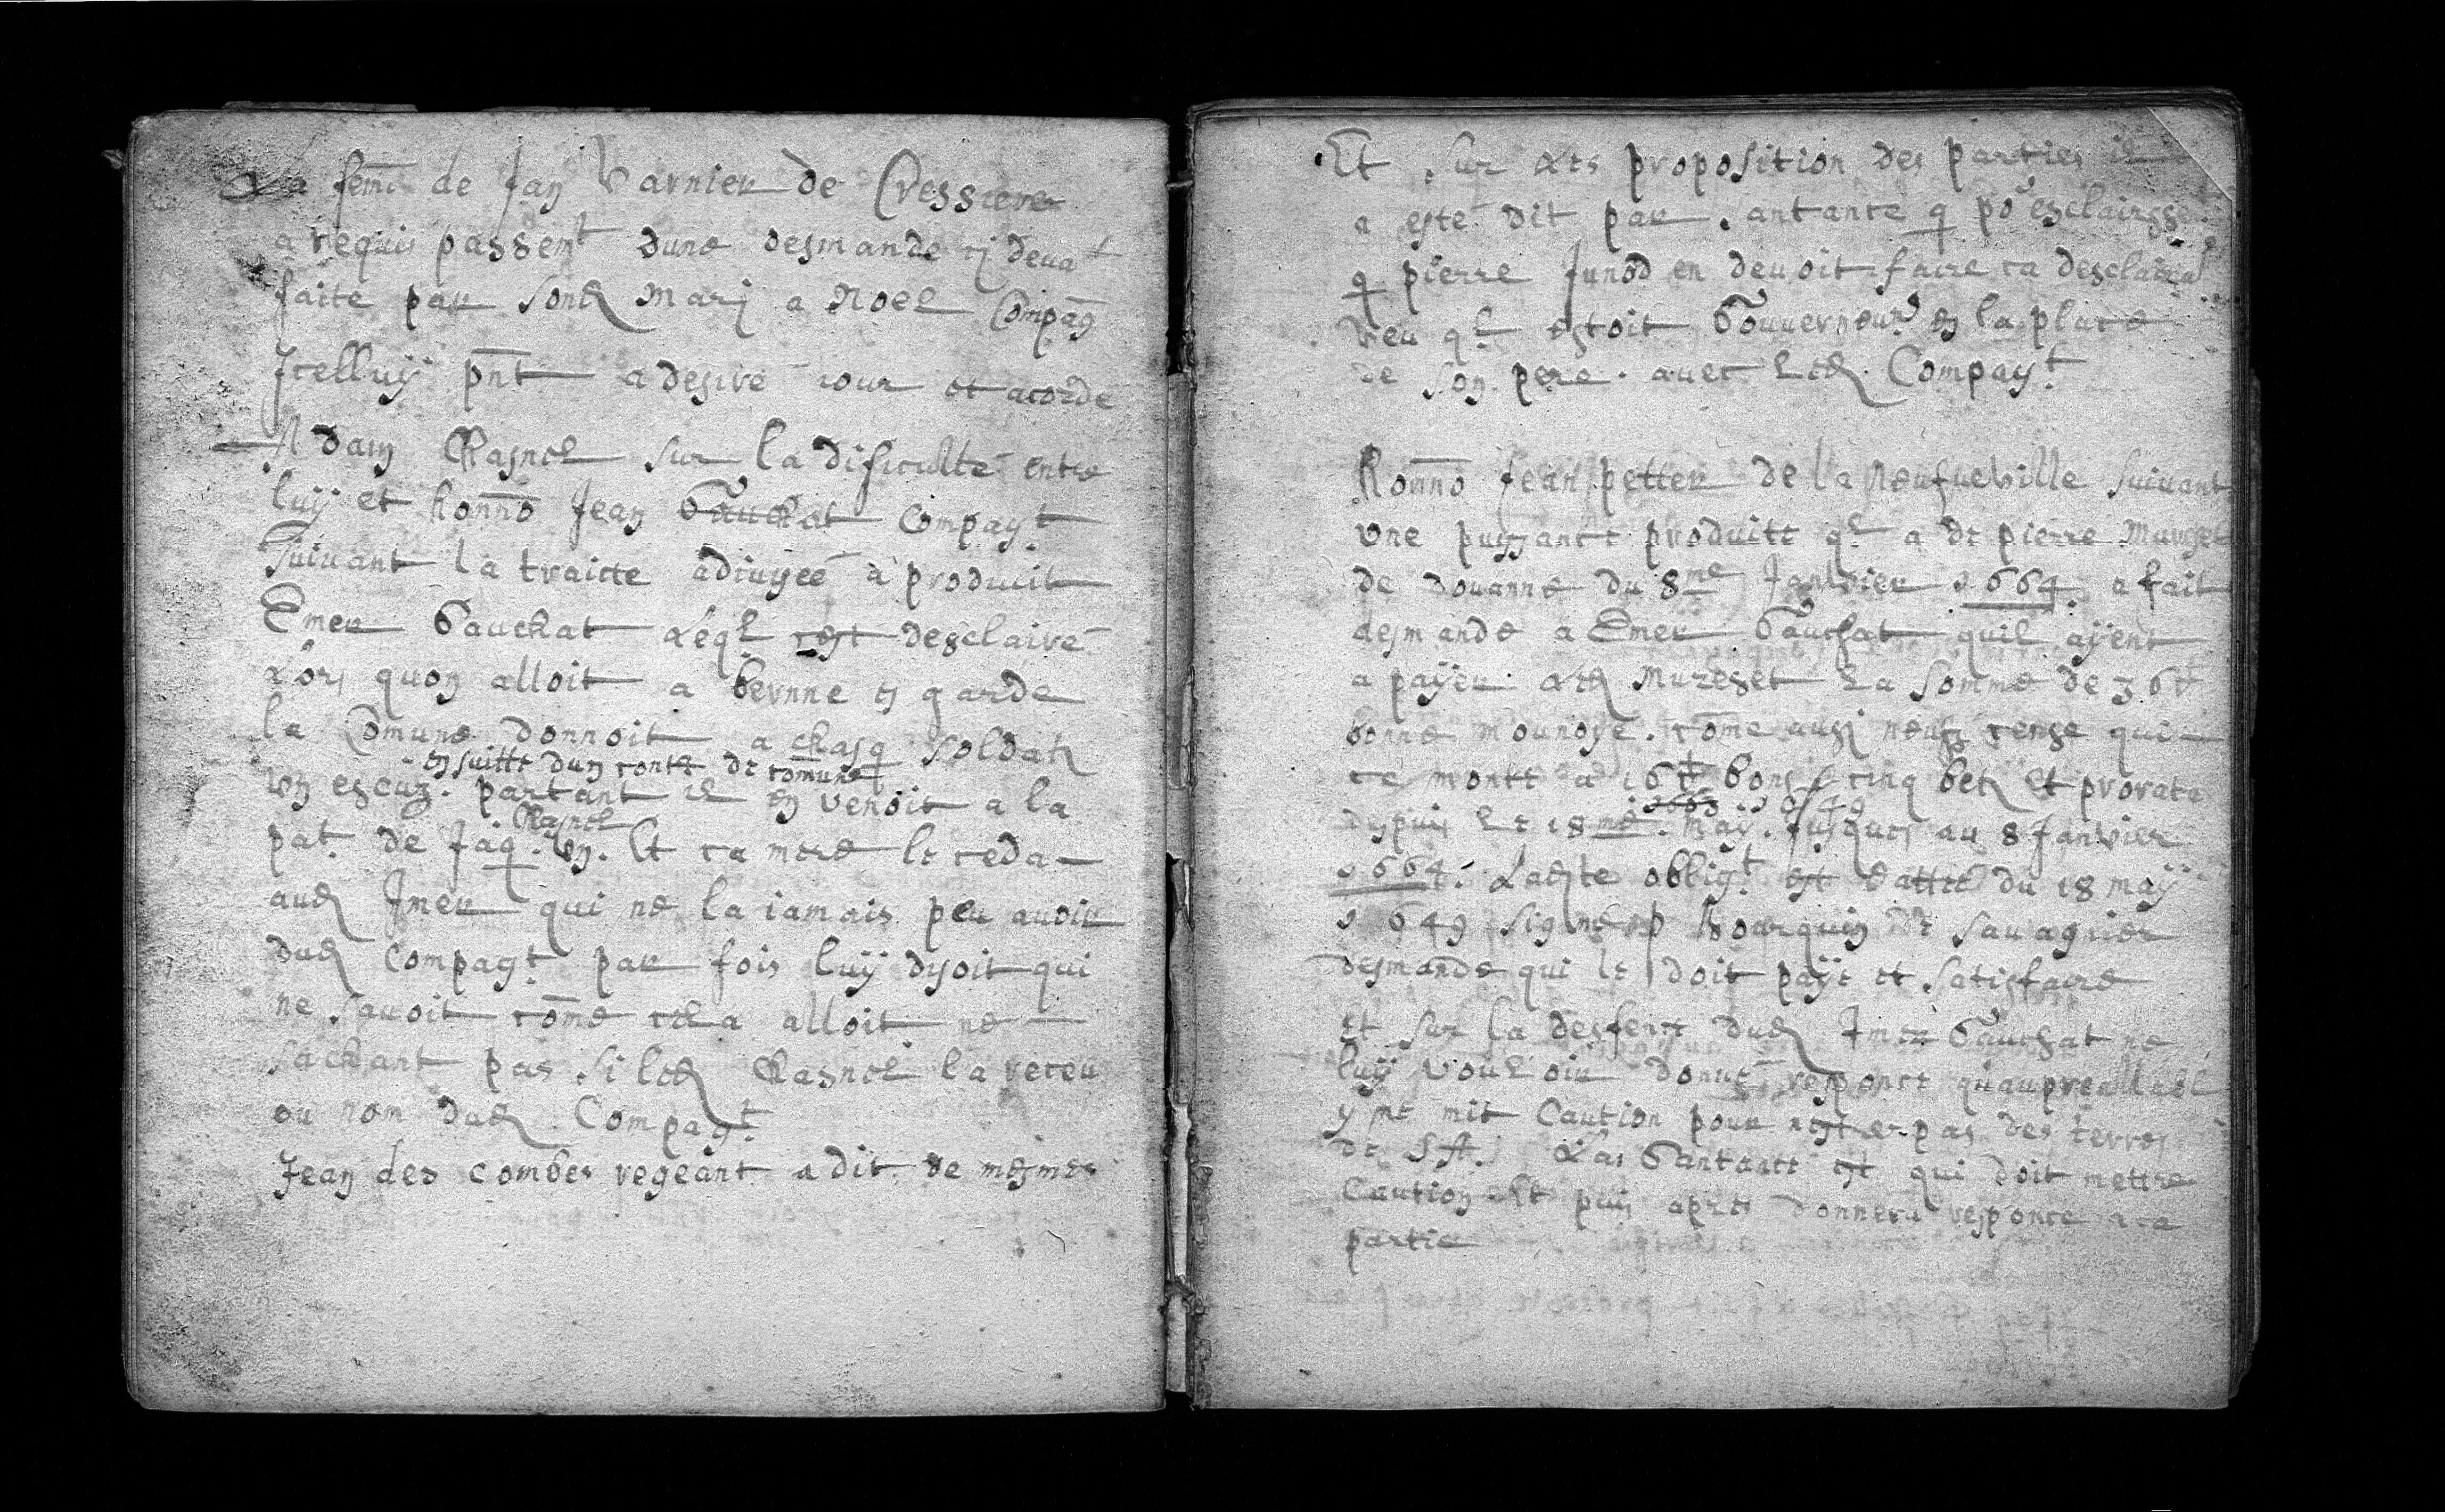 La feme de Jan Varnier de Cressiere
a requis passemt dune desmande cy devat
faite par sond mary a Noel Compag
Jcelluÿ pnt a desiré iour et acorde
Adam Chasnel sur la dificulté entre
luÿ et honno Jean Gauchat Compagt
Suivant la traitte adiugée a produit
Emer Gauchat Leql cest desclairé
Lors quon alloit a bernne en garde
la Comune donnoit a chasq soldatz
en suitte dun conte de comune
ung escuz. partant il en venoit a la
Chasnel
pat. de Jaq. Vn. Et ca mere le ceda
aud Jmer qui ne la iamais peu avoir
dud Compagt. par fois luÿ dysoit qui
ne savoit come cela alloit ne
sachant pas si led Chasnel la receu
ou non dud Compagt
Jean des combes regeant a dit de mesmes
Et sur Les proposition des parties il
a esté dit par santance q po esclairsse.
q pierre Junod en devoit faire ca desclairat
veu ql estoit Gouverneur en la place
de son pere. avec led. Compagt
Honno Jean petter de la Neufveville suivant
une puissance produitte ql a de pierre Mureset
de douanne du 8me Janvier 1664. a fait
desmande a Emer Gauchat quil aÿent
a paÿer aud Mureset La somme de 36
bonne mounoÿe. come ausy neufz cense qui
ce monte a 16 bons cinq betz Et prorata
1663. 1649
despuis Le 18me. Maÿ. Jusques au 8 Janvier
1664. Ladte obligt. est dattée du 18 maÿ
1649 signe p Bourguin de savagnier
desmande qui le doit paÿe et satisfaire
et sur la desfence dud Jmer Gauchat ne
luÿ vouloir donné responce quaupreallabl
y ne mit Caution pour nester pas des terres
de S A. Las Santance est qui doit mettre
Caution Et puis apres donnera responce a ca
partie